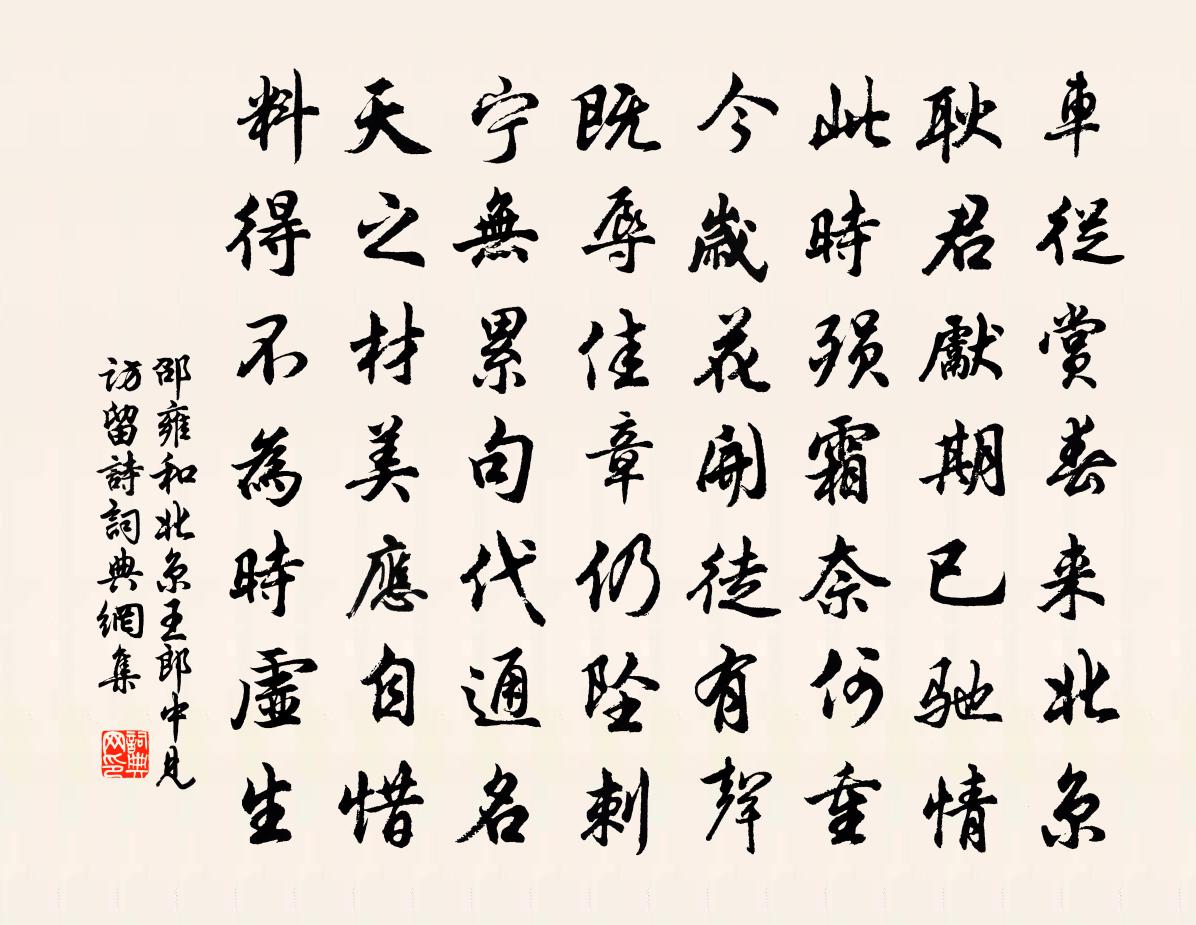 車從賞春来北京
耿君獻期已馳情
此時殞霜奈何重
今歲花開徒有聲
既辱佳章仍墜刺
宁無累句代通名
天之材美應自惜
料得不為時虛生
邵雍和北京王郎中見
访留詩詞典網集
詞典网印